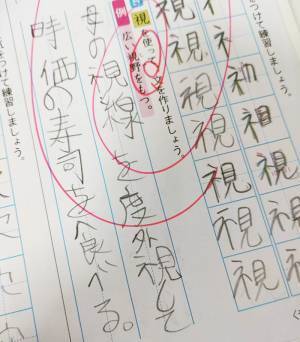 つけて練習しましょう。
視視視視視視
ネ初祖視視視視
視を使って文を作りましょう。
例 広い視野をもつ。
母の視線を度外視して
時価の寿司を食べる。
をつけて練習しましょう。